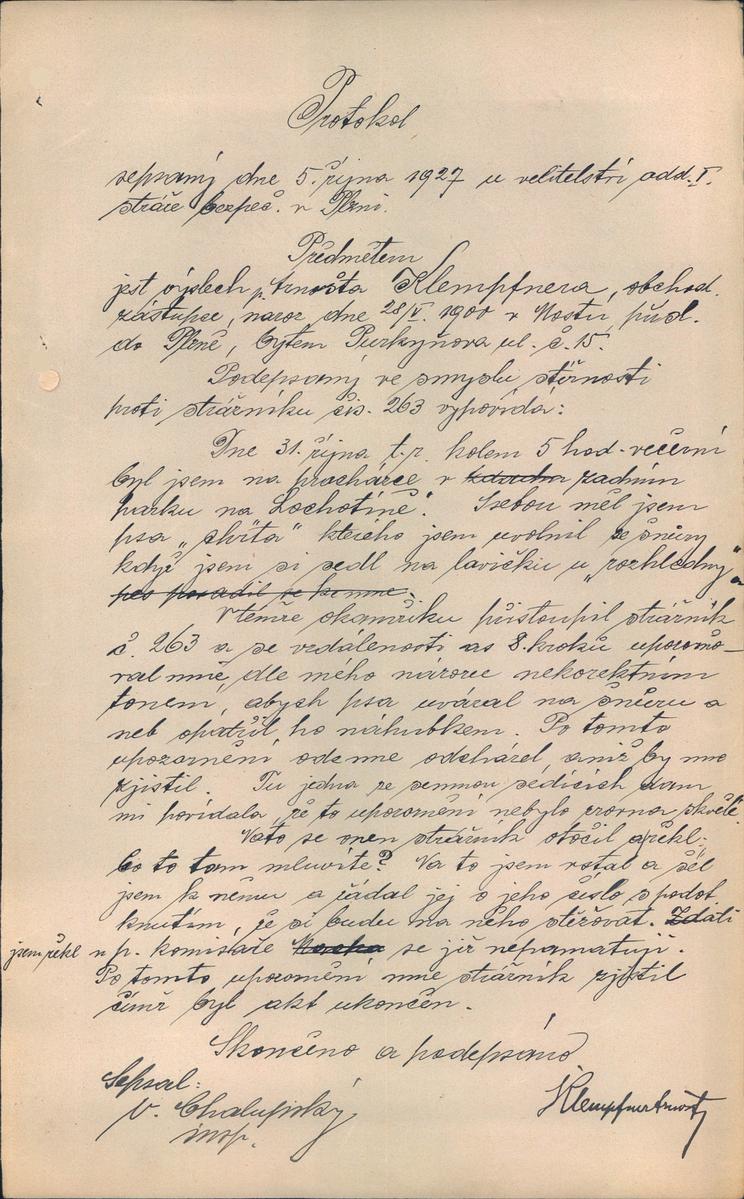 Protokol
sepsaný dne 5. října 1927 u velitelství odd. I.
stráže bezpeč. v Plzni.
Předmětem
jest výslech p. Arnošta Klempfnera, obchod.
zástupce, naroz. dne 28/V. 1900 v Mostu, přísl.
do Plzně, bytem Purkyňova ul. č. 15.
Podepsaný ve smyslu stížnosti
proti strážníku čís. 263 vypovídá:
Dne 31. října t. r. kolem 5 hod. večerní
byl jsem na procházce v zadním
parku na Lochotíně. Sebou měl jsem
psa, kterého jsem uvolnil ze šňůry
když jsem si sedl na lavičku u „rozhledny"
pes se ke mne.
V témže okamžiku přistoupil strážník
č. 263 a ze vzdálenosti as 8. kroků upozorňo-
val mně, dle mého názoru nekorektním
tonem, abych psa uvázal na šňůru a
neb opatřil ho náhubkem. Po tomto
upozornění odemne odcházel, aniž by mne
zjistil. Tu jedna ze semnou sedících dam
mi povídala, že to upozornění nebylo zrovna skvělé.
Nato se onen strážník otočil a řekl:
Co to tam mluvíte? Na to jsem vstal a šel
jsem k němu a žádal jej o jeho číslo s podot.
knutím, že si budu na něho stěžovat. Zdali
jsem řekl u p. komisaře se již nepamatuji.
Po tomto upozornění mne strážník zjistil
čímž byl akt ukončen.
Skončeno a podepsáno
Sepsal:
V. Chalupský
insp.
Klempfner Arnošt